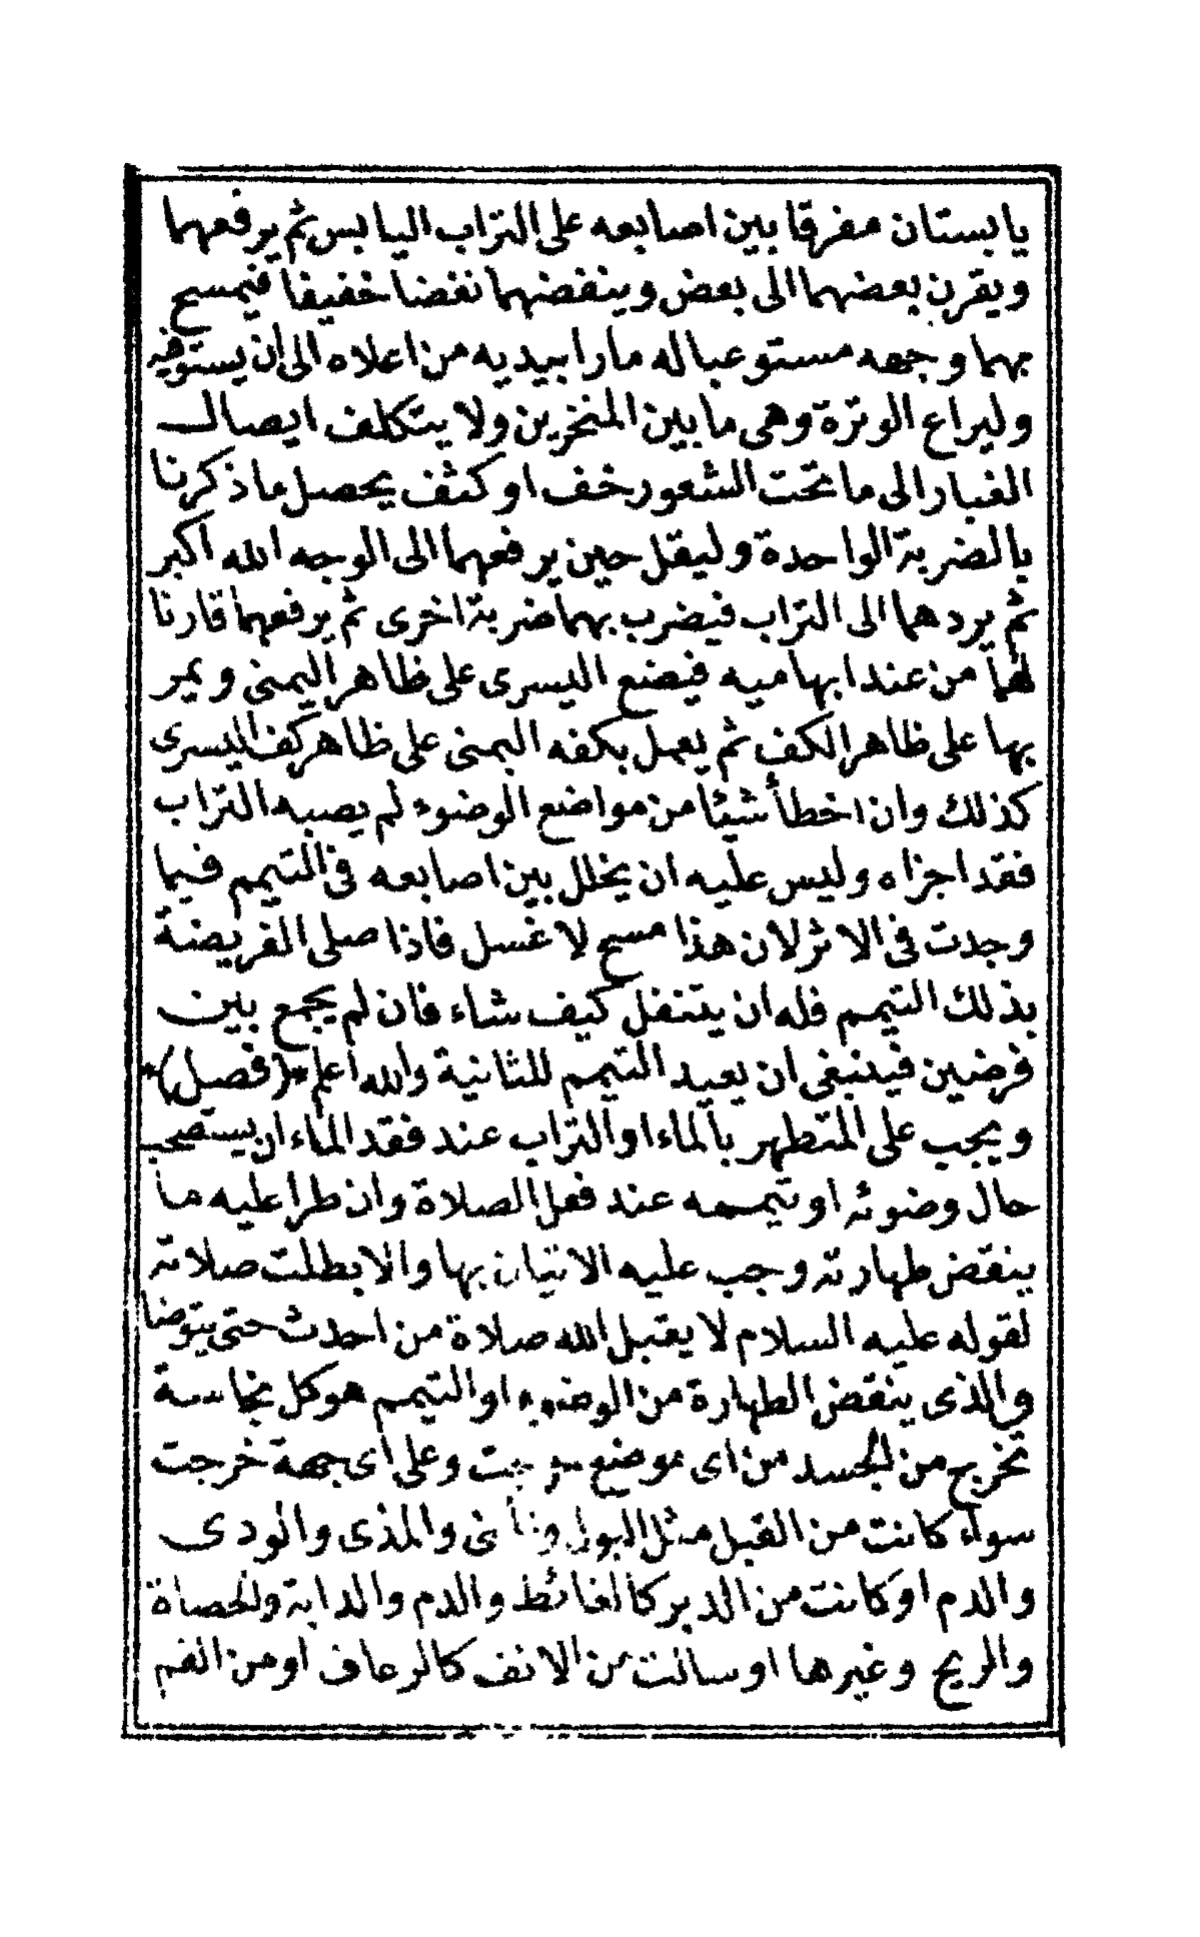 يابستان مفرقا بين اصابعه على التراب اليابس ثم يرفعهما
ويقرن بعضهما الى بعض وينفضهما نفضا خفيفا فيمسح
بهما وجهه مستوعبا له مارا بيديه من اعلاه الى ان يستوفيه
وليراع الوترة وهى ما بين المنخرين ولا يتكلف ايصال
الغبار الى ما تحت الشعور خف او كثف يحصل ما ذكرنا
بالضربة الواحدة وليقل حين يرفعهما الى الوجه الله اكبر
ثم يردهما الى التراب فيضرب بهما ضربة اخرى ثم يرفعهما قارنا
لهما من عند ابهاميه فيضع اليسرى على ظاهر اليمنى ويمر
بها على ظاهر الكف ثم يعمل بكفه اليمنى على ظاهر كف اليسرى
كذلك وان اخطأ شيئا من مواضع الوضوء لم يصبه التراب
فقد اجزاه وليس عليه ان يخلل بين اصابعه فى التيمم فيما
وجدت فى الاثر لان هذا مسح لا غسل فاذا صلى الفريضة
بذلك التيمم فله ان يتنفل كيف شاء فان لم يجمع بين
فرضين فينبغى ان يعيد التيمم للثانية والله اعلم *(فصل)*
ويجب على المتطهر بالماء او التراب عند فقد الماء ان يستصحب
حال وضوئه او تيممه عند فعل الصلاة وان طرا عليه ما
ينقض طهارته وجب عليه الاتيان بها والا بطلت صلاته
لقوله عليه السلام لا يقبل الله صلاة من احدث حتى يتوضا
والذى ينقض الطهارة من الوضوء او التيمم هو كل نجاسة
تخرج من الجسد من اى موضع خرجت وعلى اى جهة خرجت
سواء كانت من القبل مثل البول والمنى والمذى والودى
والدم او كانت من الدبر كالغائط والدم والدابة والحصاة
والريح وغيرها او سالت من الانف كالرعاف او من الفم